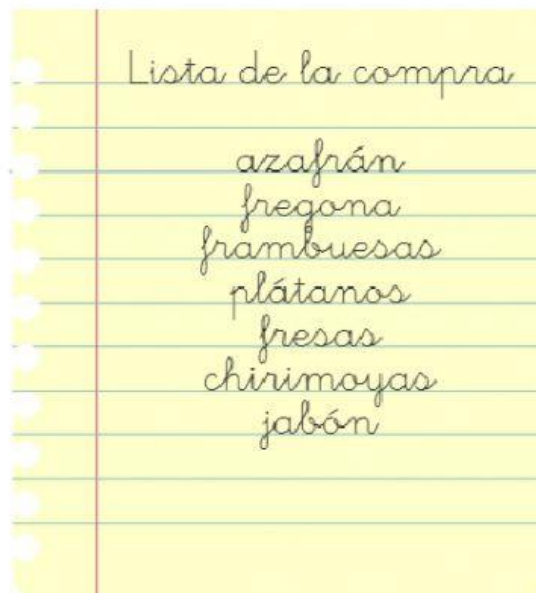 Lista de la compra
azafrán
fregona
frambuesas
plátanos
fresas
chirimoyas
jabón